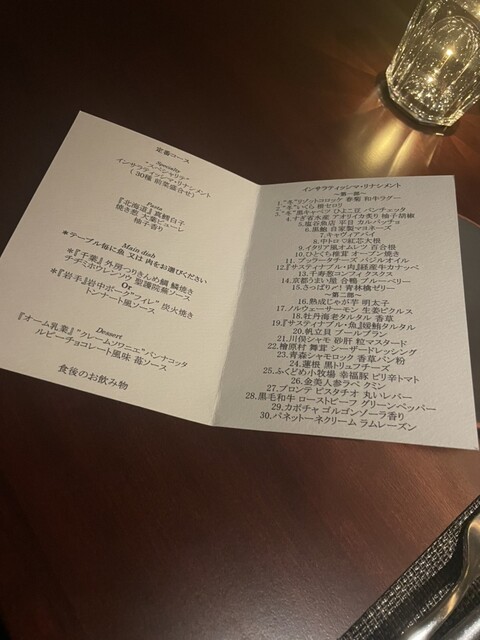 定番コース
Specialty
"スペシャリテ"
インサラティッシマ・リナシメント
（30種 前菜盛合せ）
Pasta
『北海道』真鱈白子
焼き葱 大葉ピューレ
柚子香り
Main dish
＊テーブル毎に魚 又は 肉をお選びください
＊『千葉』外房つりきんめ鯛 鱗焼き
チヂミホウレンソウ 聖護院蕪ソース
Or
＊『岩手』岩中ポーク"フィレ" 炭火焼き
トンナート風ソース
Dessert
『オーム乳業』"クレームソワニエ"パンナコッタ
ルビーチョコレート風味 苺ソース
食後のお飲み物
インサラティッシマ・リナシメント
～第一部～
1."冬"リゾットコロッケ 春菊 和牛ラグー
2."冬"いくら 樹セロリ
3."冬"黒キャベツ ひよこ豆 パンチェッタ
4.すぎ省水産 アオリイカ炙り 柚子胡椒
5.塩谷魚店 平目 カルパッチョ
6.黒鮑 自家製マヨネーズ
7.キャヴィアパイ
8.中トロ♡紅芯大根
9.イタリア風オムレツ 百合根
10.ひとくち椎茸 オーブン焼き
11.ブッラータチーズ バジルオイル
12.『サスティナブル・肉』経産牛カナッペ
13.千寿葱コンフィ クスクス
14.京都うまい屋 合鴨 ブルーベリー
15.さっぱり♂! 青林檎ゼリー
～第二部～
16.熟成じゃが芋 明太子
17.ノルウェーサーモン 生姜ピクルス
18.牡丹海老タルタル 香草
19.『サスティナブル・魚』鰹鮪タルタル
20.帆立貝 ブールブラン
21.川俣シャモ 砂肝 粒マスタード
22.檜原村 舞茸 シーザードレッシング
23.青森シャモロック 香草パン粉
24.蓮根 黒トリュフチーズ
25.ふくどめ小牧場 幸福豚 ピリ辛トマト
26.金美人参ラペ クミン
27.ブロンテ ピスタチオ 丸いレバー
28.黒毛和牛 ローストビーフ グリーンペッパー
29.カボチャ ゴルゴンゾーラ香り
30.パネットーネクリーム ラムレーズン